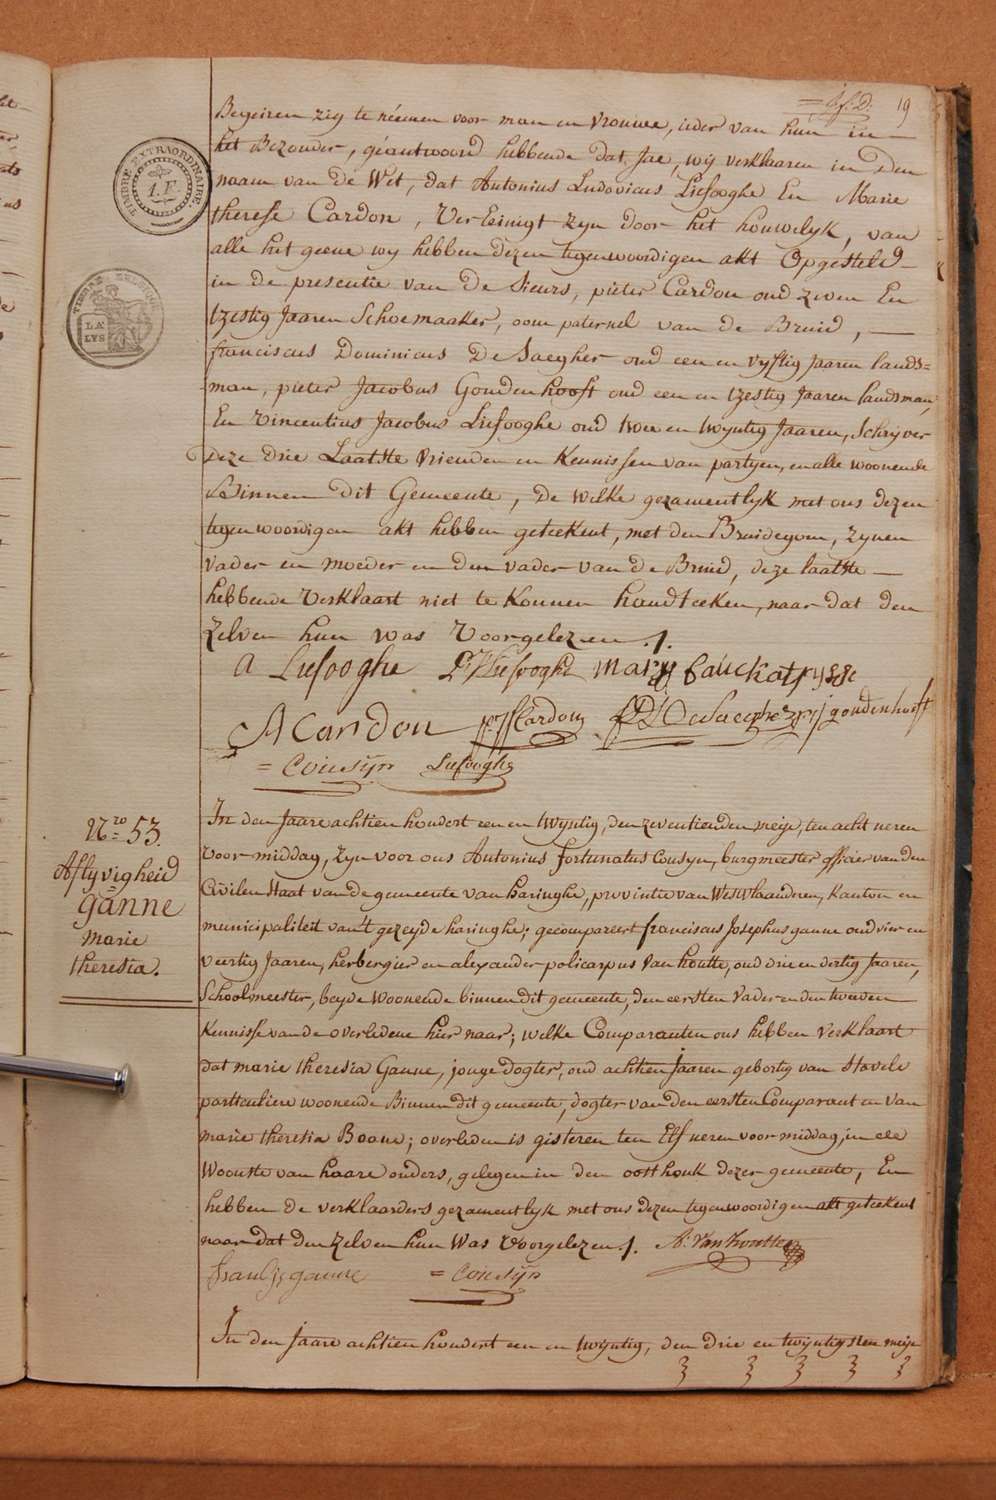 19
TIMBRE EXTRAORDINAIRE.
1. F.
LA
LYS
Begeiren zig te néemen voor man en vrouwe, ieder van hun in
het Bezonder, géantwoord hebbende dat, Jae, wij verklaaren in den
naam van de Wet, dat Antonius Ludovicus Liefooghe En Marie
therese Cardon, Vereeinigt zyn door het houwelyk, van
alle het geene wy hebben dezen tegenwoordigen akt Opgesteld
in de presentie van de Sieurs, pieter Cardon oud zeven En
tzestig Jaaren Schoemaaker, oom paternel van de Bruid,
franciscus Dominicus De Saegher oud een en vyftig Jaaren lands=
man, pieter Jacobus Goudenhooft oud een en tzestig Jaaren landsman,
En vincentius Jacobus Liefooghe oud twee en twyntig Jaaren, Schryver
deze drie Laatste vrienden en Kennissen van partyen, en alle woonende
Binnen dit Gemeente, De welke gezamentlyk met ons dezen
tegenwoordigen akt hebben geteekent, met den Bruidegom, Zynen
vader en moeder en den vader van de Bruid, deze laatste
hebbende Verklaart niet te Konnen handteeken, naar dat den
Zelven hun was Voorgelezen ./.
A Liefooghe Liefooghe
A Cardon Cardon DeSaegher goudenhooft
= Cousijn Liefooghe
Nro 53.
Aflyvigheid
ganne
marie
theresia.
In den Jaare achtien hondert een en twyntig, den zeventienden meije, ten acht ueren
Voormiddag, zyn voor ons Antonius fortunatus Cousyn, burgmeester officier van den
Civilen Staat van de gemeente van haringhe, provintie van Westvlaanderen, Kanton en
municipaliteit van't gezeyde haringhe; gecompareert franciscus Josephus ganne oud vier en
veertig Jaaren, herbergier en alexander policarpus Van houtte, oud drie en dertig Jaaren,
Schoolmeester, beyde woonende binnen dit gemeente, den eersten vader en den tweeden
Kennisse van de overledene hier naar; welke Comparanten ons hebben verklaart
dat marie theresia Ganne, jonge dogter, oud achtien Jaaren gebortig van Stavele
particuliere woonende Binnen dit gemeente, dogter van den eersten Comparant en van
marie theresia Boone; overleden is gisteren ten Elf ueren voormiddag, in de
Woonste van haare ouders, gelegen in den oosthouk dezer gemeente, En
hebben de verklaarders gezamentlyk met ons dezen tegenwoordigen akt geteekent
naar dat den Zelven hun Was Voorgelezen ./. A: Van houtte
ganne = Cousijn
In den Jaare achtien hondert een en twyntig, den drie en twyntigsten meije